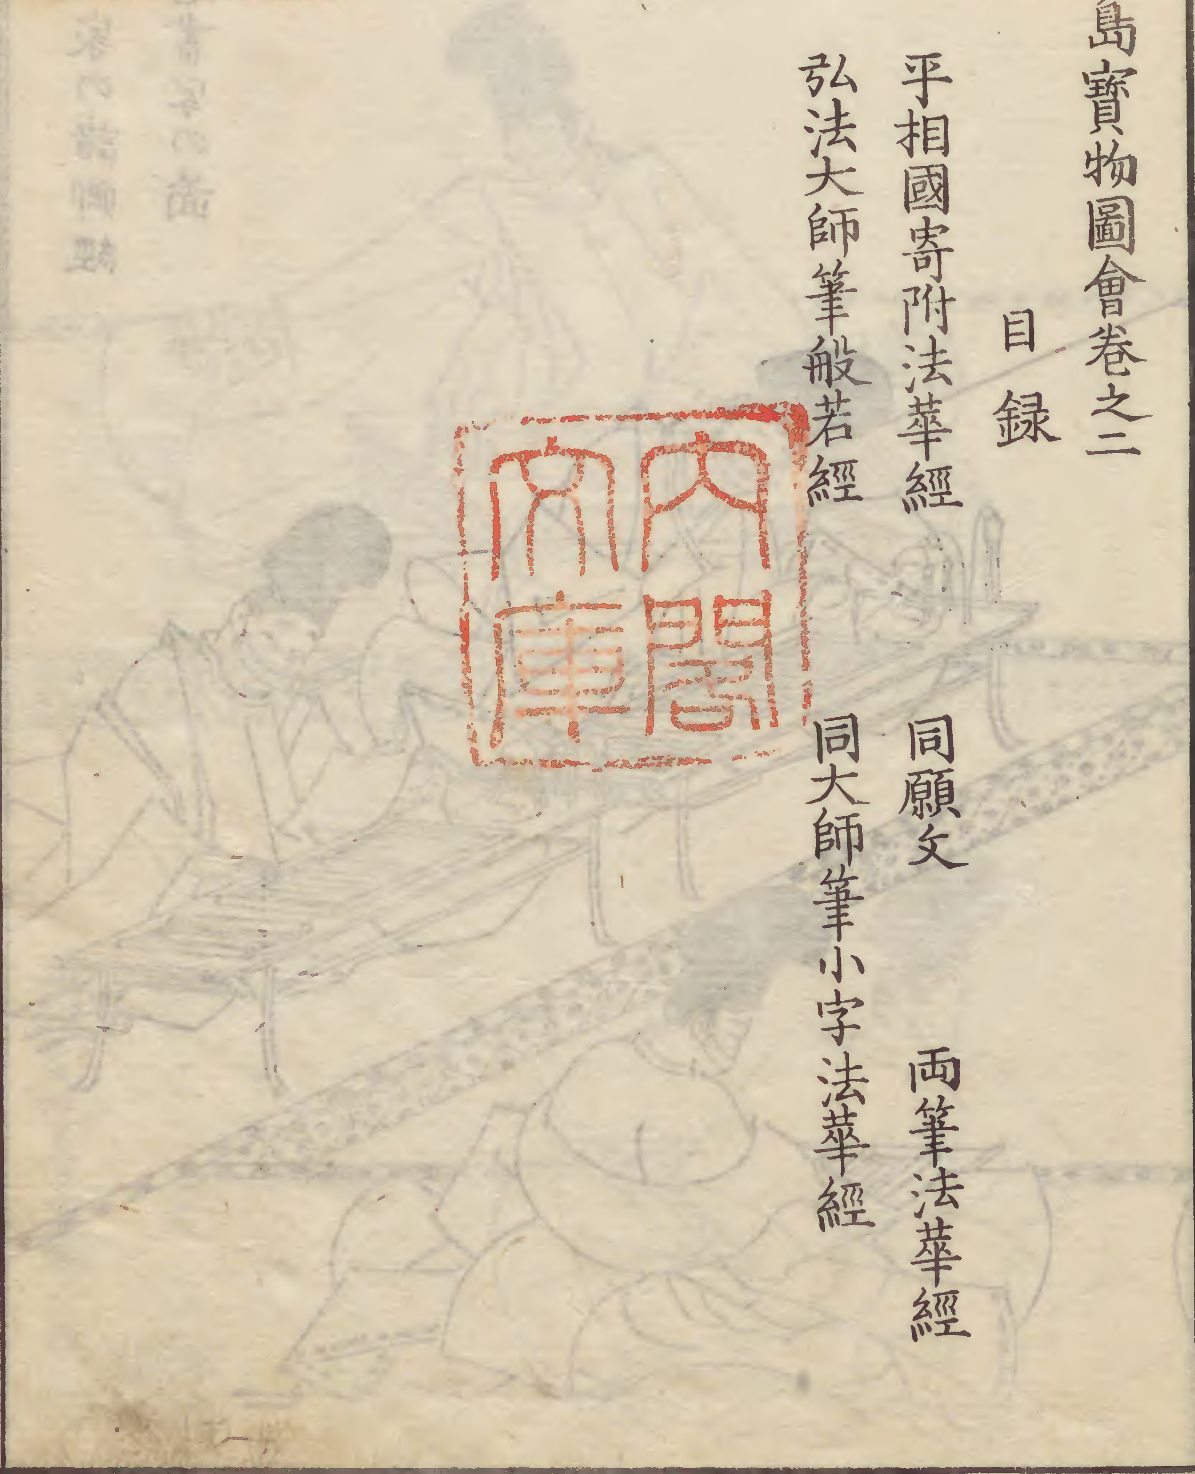 島寶物圖會卷之二
目録
平相國寄附法華經 同願文 両筆法華經
弘法大師筆般若經 同大師筆小字法華經
内閣文庫